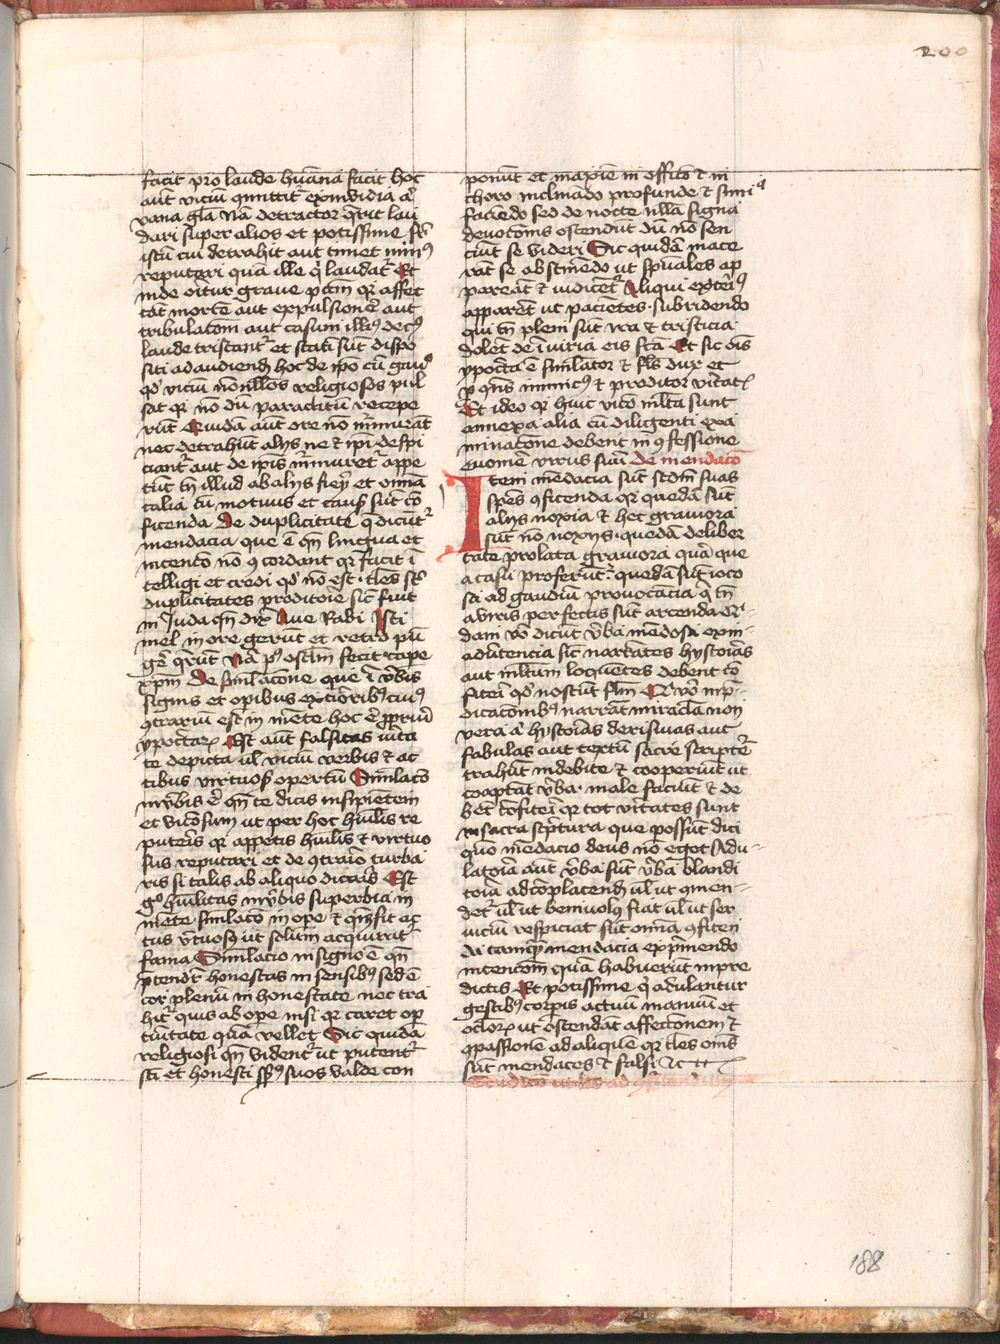 200
facit pro laude hūana facit hoc
aut viciū ꝯmittit̄ ex invidia aͥ
vana gl̄a Nā detractor q̄rit lau
dari super alios et potissime sr̄
istū cui detrahit aut timet minꝰ
reputari quā ille qͥ laudat̄ Et
inde oritur graue pctm̄ qr̄ affec
tāt mortē aut expulsionē aut
tribulatōm aut casum illiꝰ de cꝰ
laude tristant̄ et stati sūt dispo
siti ad audiend̄ hoc de ip̄o cū gau
qd̄ viciū nōnllos religiosos pul
sat qr̄ nō dū paraclitū recepe
rūt Quidā aūt ore nō mr̄murāt
nec detrahūt alijs ne et ip̄i despi
ciant̄ aut de ip̄is mr̄muret̄ appe
tūt tn̄ illud ab alijs fieri et om̄ia
talia cū motiuis et causis sūt cō
fitenda De duplicitate q̄ dicūt̄
mendacia que ē qn̄ lingua et
intentō nō ꝯcordant qr̄ facit ī
telligi et credi qd̄ nō est · tl̄es sr̄
duplicitates proditorie sic̄ fuit
in Juda qn̄ dix̄ Aue Rabi Isti
mel in ore gerūt et retro pū
ge̅ q̄rūt Nā pꝰ osclm̄ fecit cape
xp̄m De siml̄acōne que ī v̄bis
signis et opibus exterioribꝰ cuiꝰ
ꝯtrariū est in mēte hoc ē ꝓpriū
ypocitarꝝ Est aūt falsitas vita
te depicta ul̄ viciū verbis et ac
tibus virtuosis opertū Siml̄acō
in v̄bis ē qn̄ te dicis insipientem
et viciosum ut per hoc hūilis re
puteris qr̄ appetis hūilis et virtuo
sus reputari et de ꝯtrario turba
ris si talis ab aliquo dicaris Est
gͦ hūilitas in v̄bis superbia in
mēte siml̄acō in ope et qn̄ fit ac
tus v̄tuosꝰ ut solum acquirat̄
fama Siml̄acio in signo ē qn̄
p̄tendit̄ honestas in sensibꝰ sed ē
cor plenū in honestate nec tra
hit̄ quis ab ope nisi qr̄ caret op
tūitate quā vellet Sic quidā
religiosi qn̄ vident̄ ut putent̄
sc̄i et honesti sp̄ꝰ suos valde con
ponūt et maxīe in officō et in
choro inclinādo profunde et simiꝰ
faciēdo sed de nocte nllā signa
deuotōnis ostendūt dū nō sen
ciūt se videri Sic quidā mace
rāt se abstinēdo ut sp̄uales ap
pareāt et iudicēt̄ Aliqui exteriꝰ
apparēt ut pacientes · subridendo
qui tn̄ pleni sūt ira et tristicia
dolēt de iniuria eis fc̄a Et sic ois
ypocita ē siml̄ator et fls̄ dux et
ꝑ ꝯn̄s inimicꝰ et proditor v̄itatꝫ
Et ideo qr̄ huic vicō ml̄ta sunt
annexa alia cū diligenti exa
minatōne debent in ꝯfessione
euomē virus suū De mendacō
Item mendacia sūt scdm̄ suas
spēs ꝯfitenda qr̄ quedā sūt
alijs noxia et hec grauiora
sūt nō noxijs · quedā deliber
tate prolata grauiora quā que
a casu proferūt̄ · quedā sūt ioco
sa ad gaudiū prouocācia q̄ tn̄
a viris perfectis sūt arcenda Qͥ-
dam v̄o dicūt v̄ba mēdosa ex in-
aduertencia sic̄ narrātes hystorias
aut ml̄tum loquētes debent cō
fiteri qd̄ noscūt sim̄ Qͥ v̄o in p̄-
dicacōnibus narrāt miracl̄a non
vera aͥ hystorias derisiuas aut
fabulas aut textū sacre scriptē
trahūt indebite et cooperiūt ut
cooptāt v̄ba · male faciūt et de
bēt cōfiteri qr̄ tot v̄itates sunt
in sacra sc̄ptura que possūt dici
quo mēdacio deus nō eget Adu-
latoria aūt v̄ba sūt v̄ba blandi
toria ad cōplacend̄ ul̄ ut ꝯmen-
det̄ ul̄ ut beniuolꝰ fiat ul̄ ut ser
uiciū respiciat sūt om̄ia ꝯfiten
da tamqͣ mendacia exp̄mendo
intencōm quā habuerūt in pre
dictis Et potissime qͥ adulantur
gestibꝰ corpis actuū manuū et
oclorꝝ ut ostendāt affectionem et
ꝯpassionē ad aliquē qr̄ tl̄es om̄s
sūt mendaces et falsi etc
188